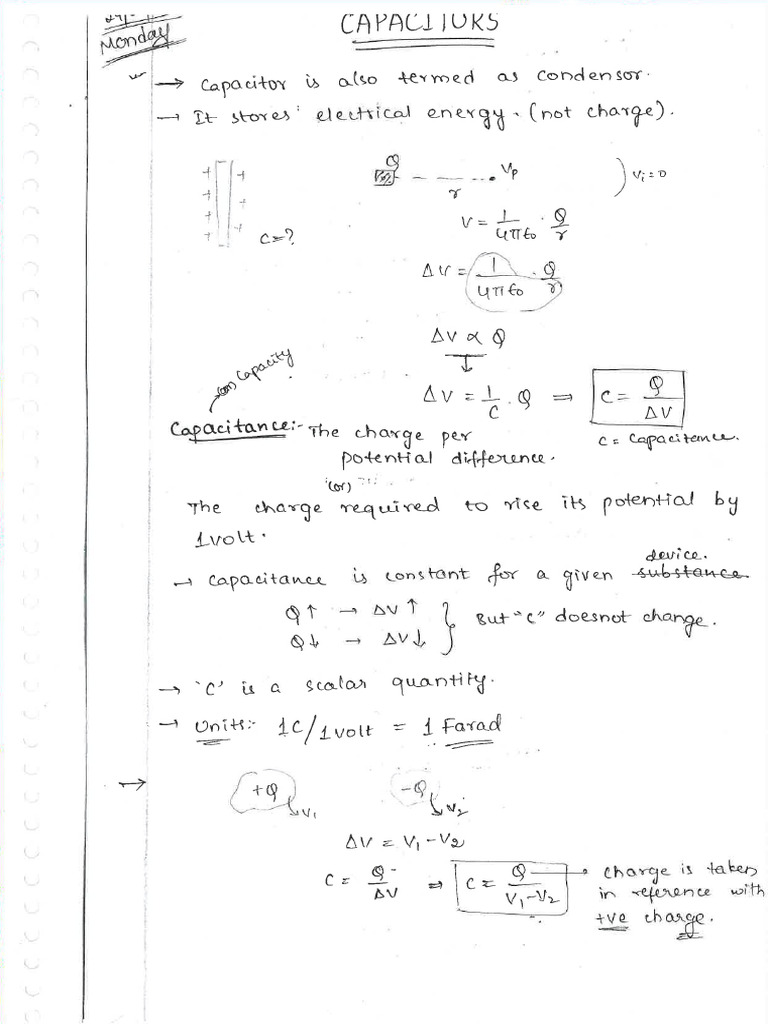 Monday
CAPACITORS
→ Capacitor is also termed as condensor.
→ It stores electrical energy. (not charge).
+ +
+ +
+ +
+ +
C=?
Q
r
Vp
Vi=0
V = 1/4πε0 · Q/r
ΔV = 1/4πε0 · Q/r
ΔV ∝ Q
(or) Capacity
ΔV = 1/C · Q ⇒ C = Q/ΔV
C = Capacitance.
Capacitance:- The charge per
potential difference.
(or)
The charge required to rise its potential by
1volt.
device.
→ Capacitance is constant for a given substance
Q↑ → ΔV↑
Q↓ → ΔV↓
} But "C" doesnot change.
→ 'C' is a scalar quantity.
→ Units:- 1C/1volt = 1 Farad
→ +Q V1 -Q V2
ΔV = V1-V2
C = Q/ΔV ⇒ C = Q/V1-V2 → charge is taken
in reference with
+ve charge.